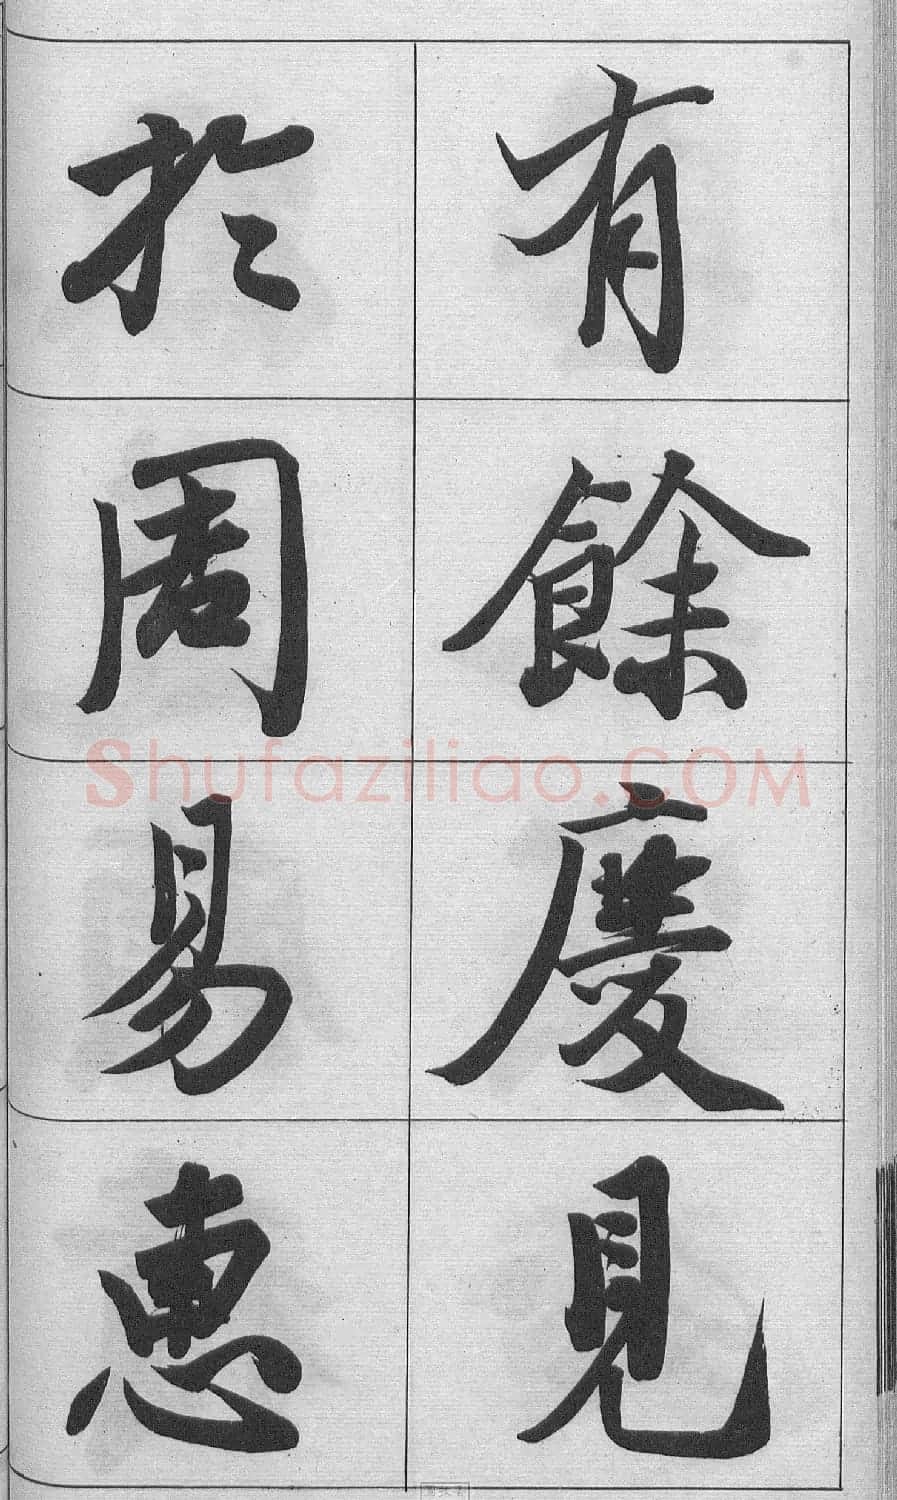 有餘慶見
於周易惠
Shufaziliao.COM